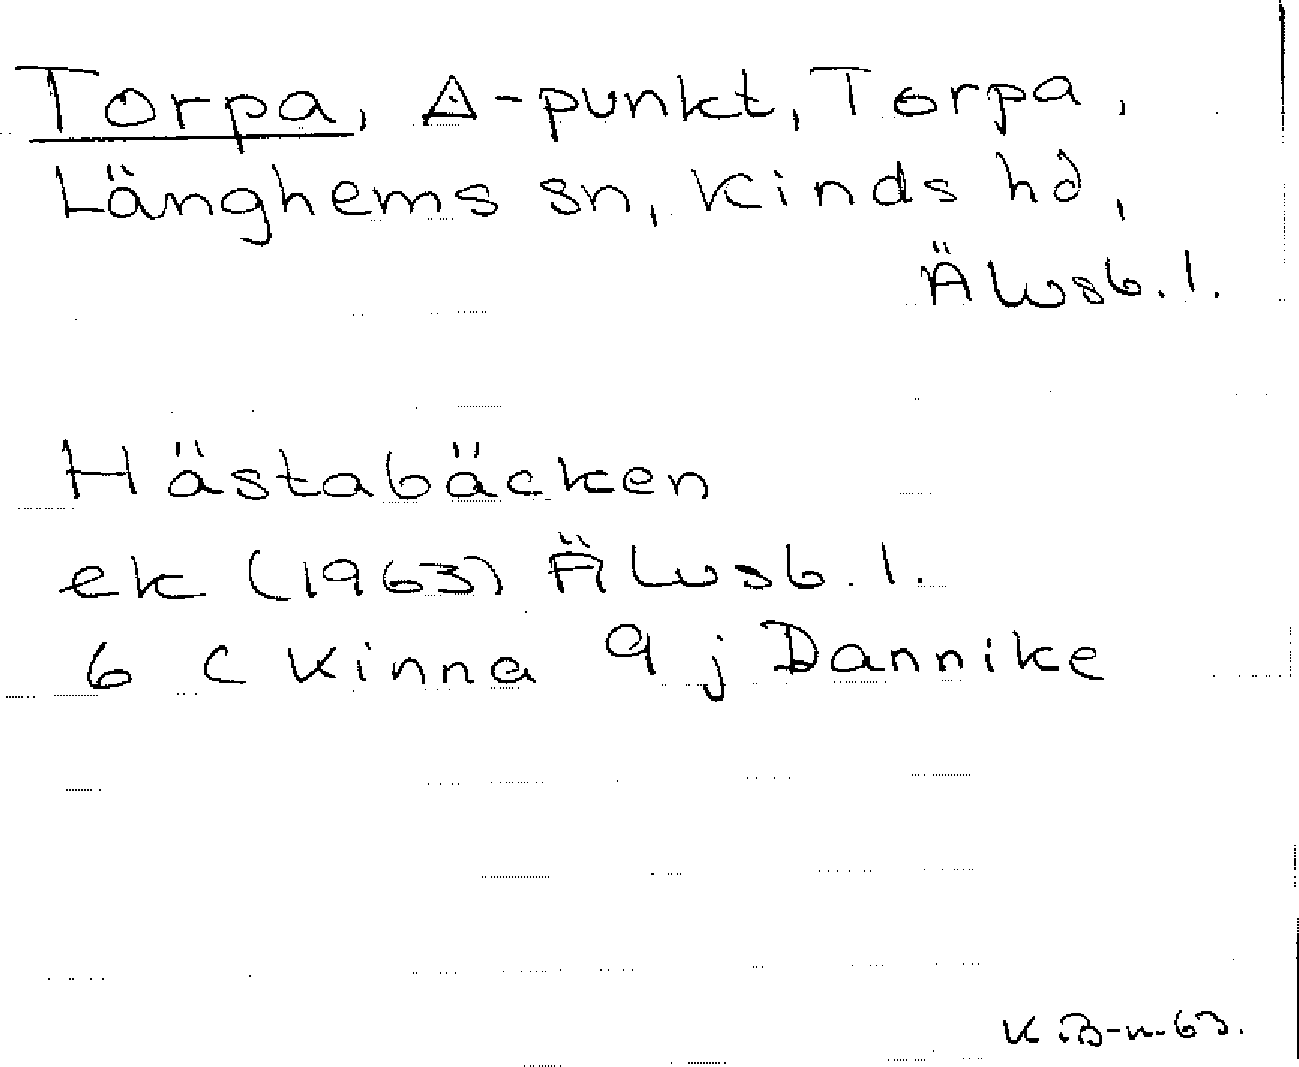 Torpa, △-punkt, Torpa,
Länghems sn, Kinds hd,
Älvsb. l.
Hästabäcken
ek (1963) Älvsb. l.
6 C Kinna 9 j Dannike
K.B-n-63.